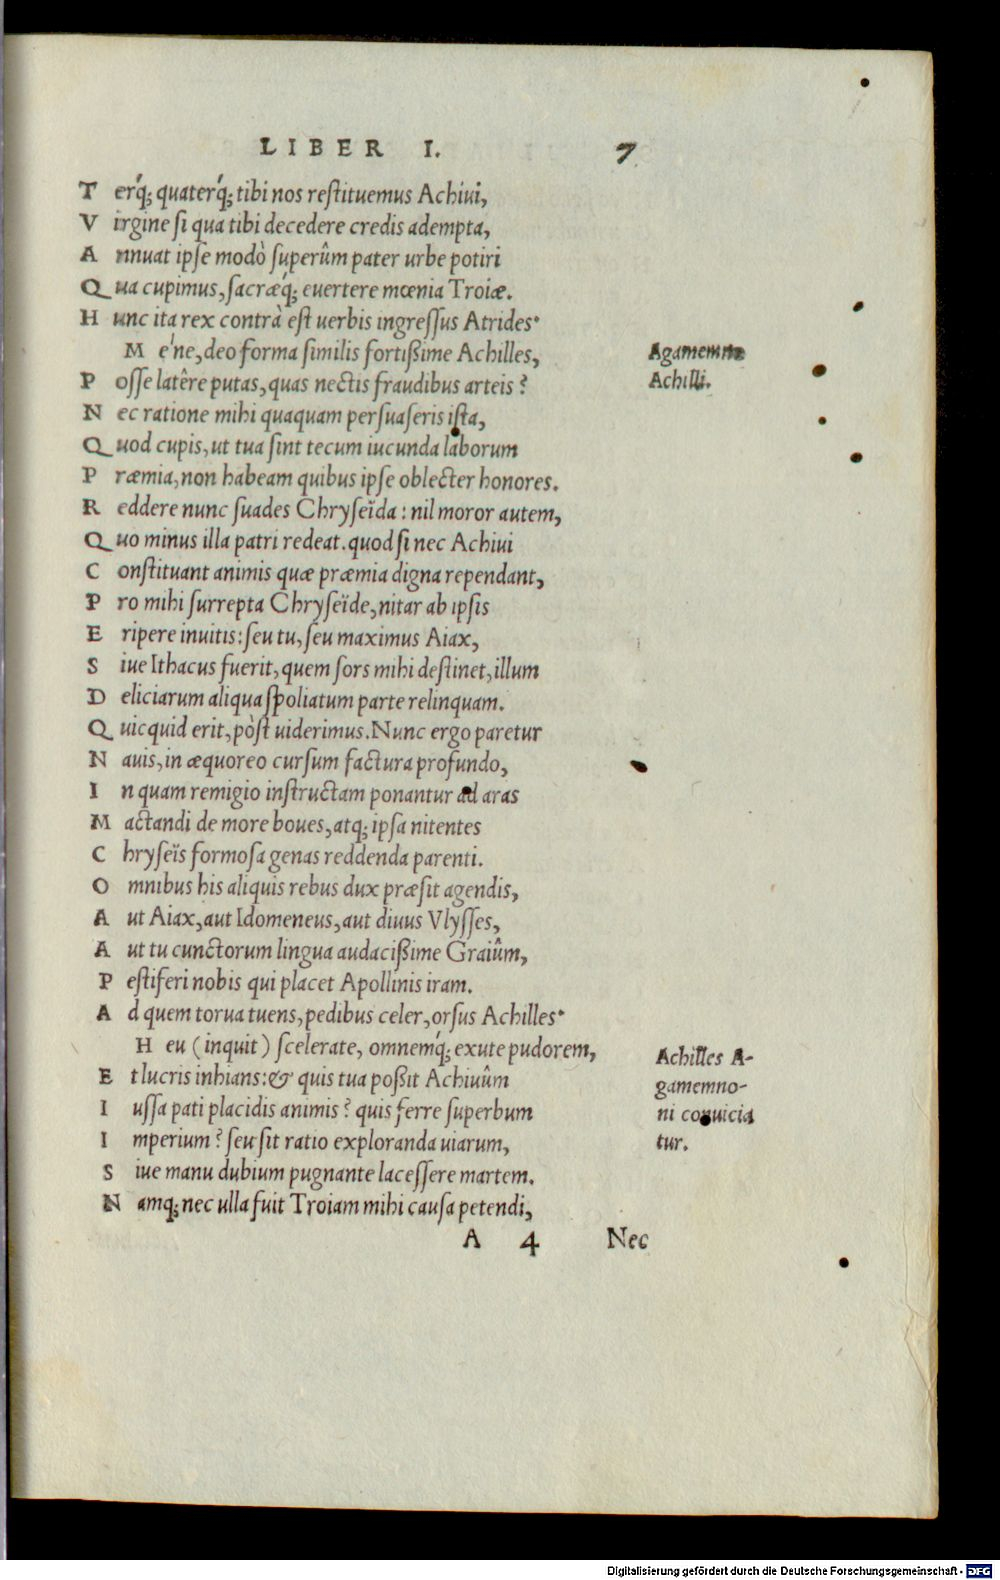 LIBER I. 7
T erq́; quaterq́; tibi nos reſtituemus Achiui,
V irgine ſi qua tibi decedere credis adempta,
A nnuat ipſe modò ſuperûm pater urbe potiri
Q ua cupimus, ſacræq́; euertere mœnia Troiæ.
H unc ita rex contrà eſt uerbis ingreſſus Atrides•
M e'ne, deo forma ſimilis fortißime Achilles,
Agamemno
P oſſe latêre putas, quas nectis fraudibus arteis?
Achilli.
N ec ratione mihi quaquam perſuaſeris iſta,
Q uod cupis, ut tua ſint tecum iucunda laborum
P ræmia, non habeam quibus ipſe oblecter honores.
R eddere nunc ſuades Chryſeïda: nil moror autem,
Q uo minus illa patri redeat. quod ſi nec Achiui
C onſtituant animis quæ præmia digna rependant,
P ro mihi ſurrepta Chryſeïde, nitar ab ipſis
E ripere inuitis: ſeu tu, ſeu maximus Aiax,
S iue Ithacus fuerit, quem ſors mihi deſtinet, illum
D eliciarum aliqua ſpoliatum parte relinquam.
Q uicquid erit, pòſt uiderimus. Nunc ergo paretur
N auis, in æquoreo curſum factura profundo,
I n quam remigio inſtructam ponantur ad aras
M actandi de more boues, atq; ipſa nitentes
C hryſeïs formoſa genas reddenda parenti.
O mnibus his aliquis rebus dux præſit agendis,
A ut Aiax, aut Idomeneus, aut diuus Vlyſſes,
A ut tu cunctorum lingua audacißime Graiûm,
P eſtiferi nobis qui placet Apollinis iram.
A d quem torua tuens, pedibus celer, orſus Achilles•
H eu (inquit) ſcelerate, omnemq́; exute pudorem,
Achilles A-
E t lucris inhians: & quis tua poßit Achiuûm
gamemno-
I uſſa pati placidis animis? quis ferre ſuperbum
ni conuicia
I mperium? ſeu ſit ratio exploranda uiarum,
tur.
S iue manu dubium pugnante laceſſere martem.
N amq; nec ulla fuit Troiam mihi cauſa petendi,
A 4 Nec
Digitalisierung gefördert durch die Deutsche Forschungsgemeinschaft - DFG